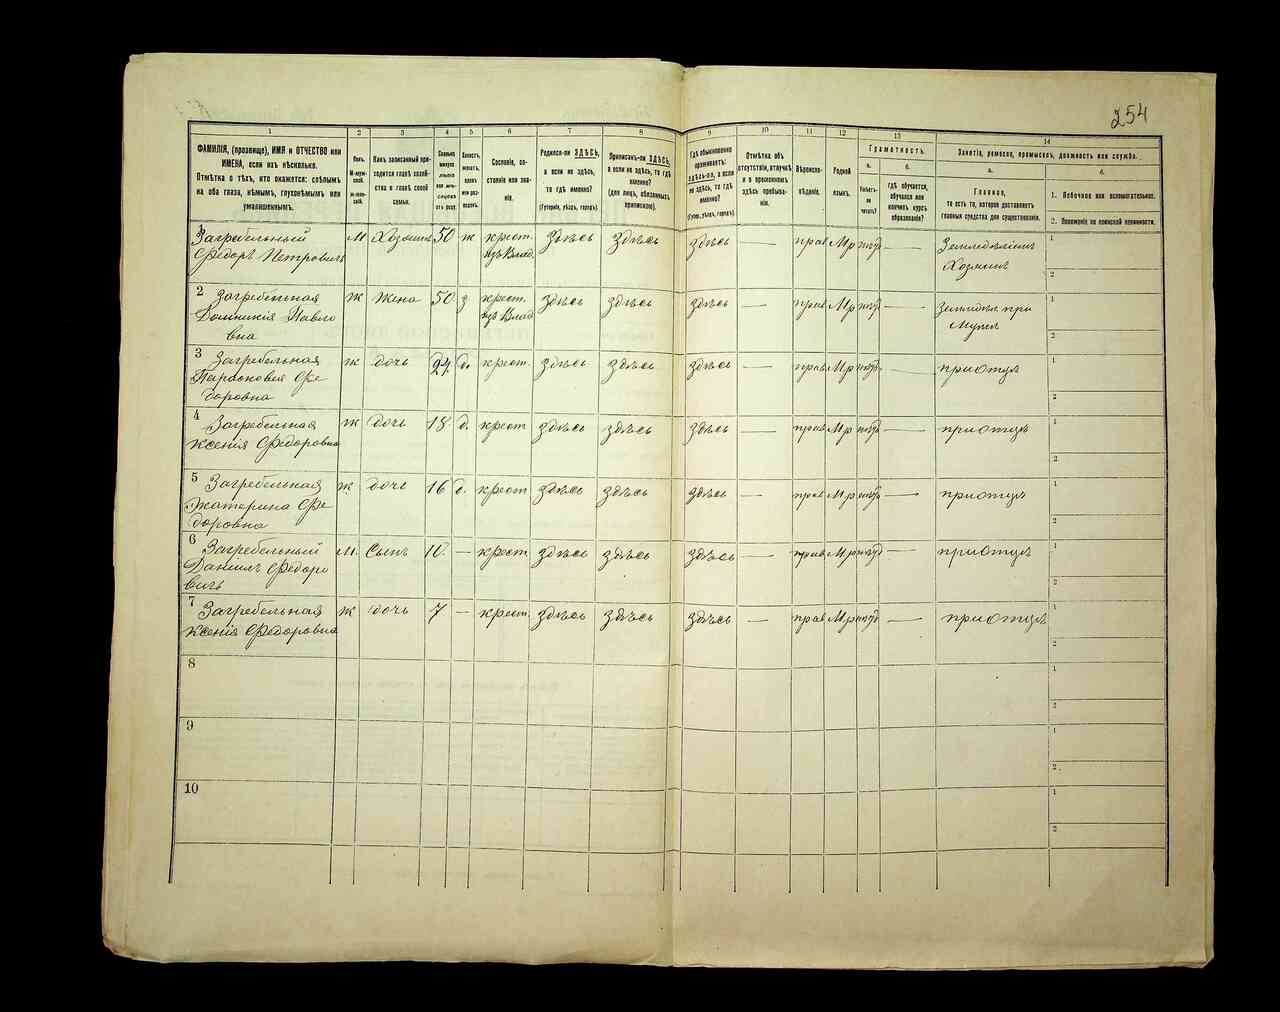 254
1 2 3 4 5 6 7 8 9 10 11 12 13 14
ФАМИЛІЯ, (прозвище), ИМЯ и ОТЧЕСТВО или
ИМЕНА, если ихъ нѣсколько.
Отмѣтка о тѣхъ, кто окажется: слѣпымъ
на оба глаза, нѣмымъ, глухонѣмымъ или
умалишеннымъ.
Полъ.
Какъ записанный при-
ходится главѣ хозяй-
ства и главѣ своей
семьи.
Сословіе, со-
стояніе или зва-
ніе.
Родился-ли ЗДѢСЬ,
а если не здѣсь,
то гдѣ именно?
(Губернія, уѣздъ, городъ).
Приписанъ-ли ЗДѢСЬ,
а если не здѣсь, то гдѣ
именно?
(для лицъ, обязанныхъ
припискою).
Гдѣ обыкновенно
проживаетъ:
здѣсь-ли, а если
не здѣсь, то гдѣ
именно?
(Губер., уѣздъ, городъ).
Отмѣтка объ
отсутствіи, отлучкѣ
и о временномъ
здѣсь пребыва-
ніи.
Вѣроиспо-
вѣданіе.
Родной
языкъ.
Грамотность.
а.
Умѣетъ-
ли
читать?
б.
гдѣ обучается,
обучался или
кончилъ курсъ
образованія?
Занятіе, ремесло, промыселъ, должность или служба.
а.
Главное,
то есть то, которое доставляетъ
главныя средства для существованія.
б.
1. Побочное или вспомогательное.
2. Положеніе по воинской повинности.
1
Загребельный
Ѳедоръ Петровичъ
М Хозяинъ 50 ж крест. изъ Влад. здѣсь здѣсь здѣсь — прав Мр — Земледѣлецъ
Хозяинъ
1
2
2 Загребельная
Домникія Павло
вна
Ж Жена 50 з крест. изъ Влад. здѣсь здѣсь здѣсь — прав Мр — при
Мужѣ
1
2
3 Загребельная
Парасковія Ѳе
доровна
Ж дочь 24 д. крест. здѣсь здѣсь здѣсь — прав Мр — при отцѣ
1
2
4 Загребельная
Ксенія Ѳедоровна
Ж дочь 18 д. крест здѣсь здѣсь здѣсь — прав Мр — при отцѣ
1
2
5 Загребельная
Екатерина Ѳе
доровна
Ж дочь 16 д. крест здѣсь здѣсь здѣсь — прав Мр — при отцѣ
1
2
6 Загребельный
Даниилъ Ѳедоро
вичъ
М. Сынъ 10. — крест здѣсь здѣсь здѣсь — прав Мр — при отцѣ
1
2
7 Загребельная
Ксенія Ѳедоровна
Ж дочь 7 — крест. здѣсь здѣсь здѣсь — прав Мр — при отцѣ
1
2
8
1
2
9
1
2
10
1
2